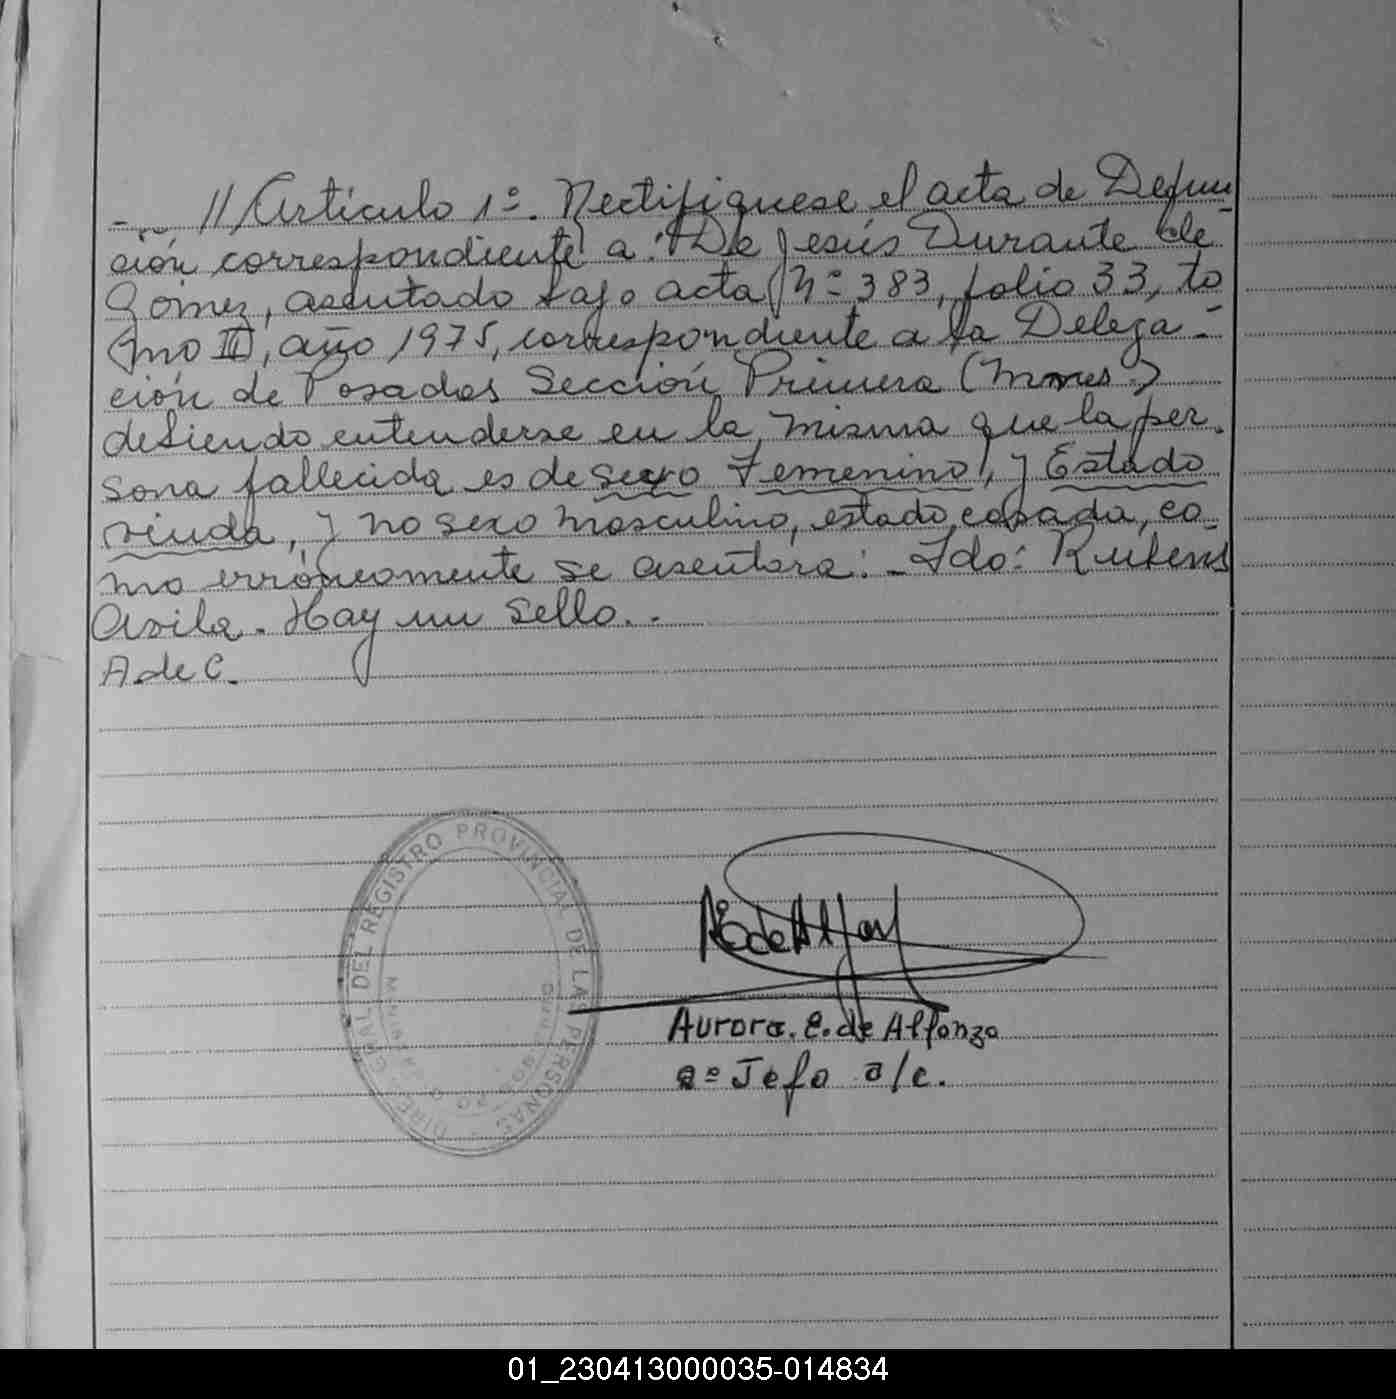 -.. // Artículo 1º. Rectifíquese el acta de Defun-
ción correspondiente a: De Jesús Durante de
Gómez, asentado bajo acta Nº 383, folio 33, to
mo III, año 1975, correspondiente a la Delega-
ción de Posadas Sección Primera (Mnes.)
debiendo entenderse en la misma que la per-
sona fallecida es de sexo Femenino, y Estado
viuda, y no sexo masculino, estado casada, co-
mo erróneamente se asentara: - Fdo: Rubens
Avila. Hay un Sello..
A de C.
DIREC. GRAL DEL REGISTRO PROVINCIAL DE LAS PERSONAS
Aurora. E. de Alfonzo
2º Jefe a/c.
01_230413000035-014834